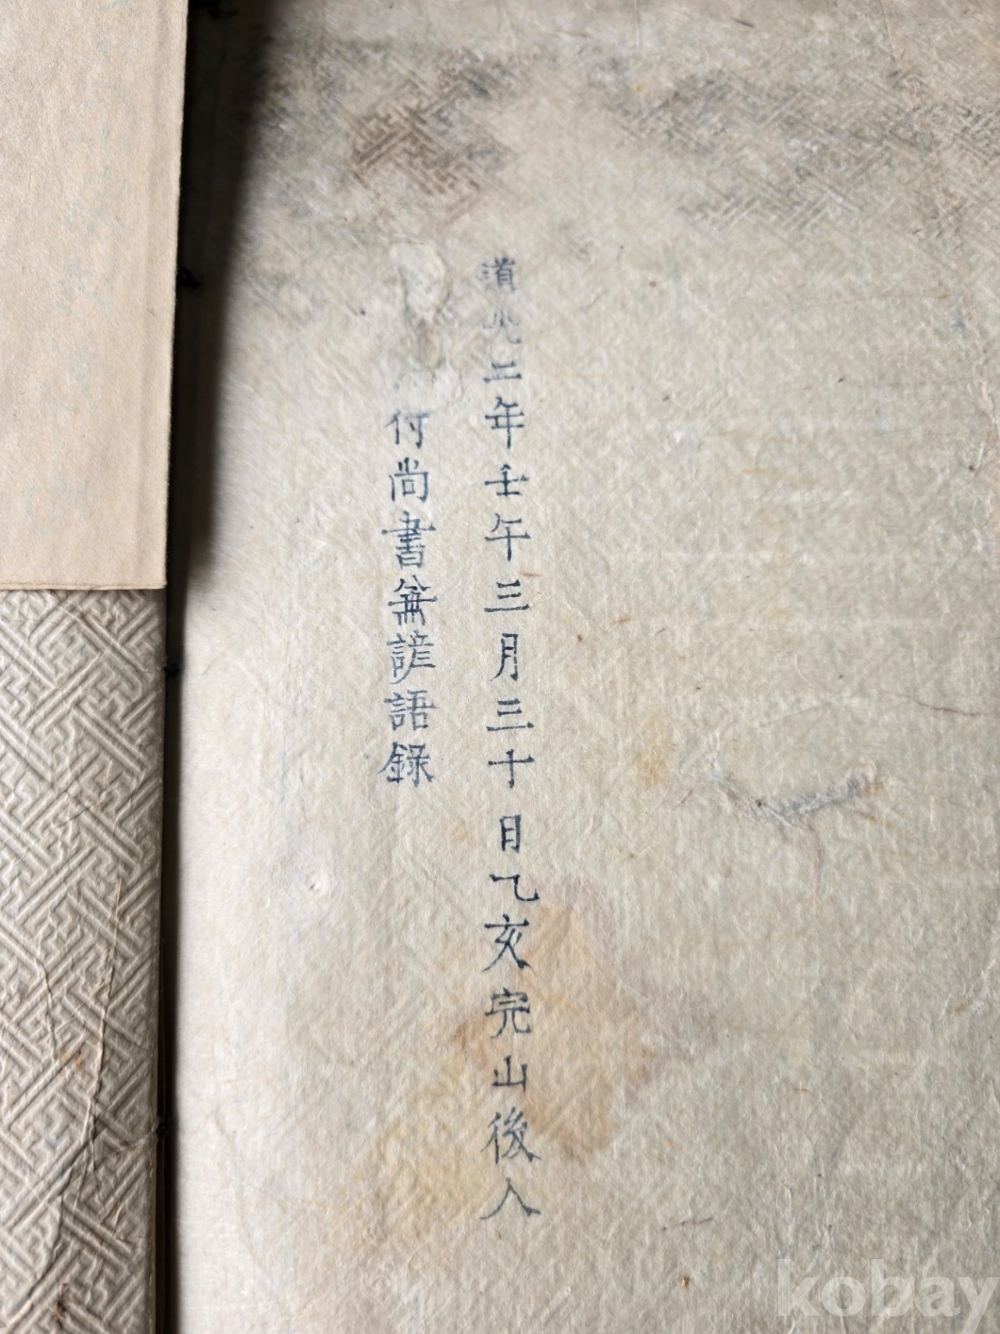 道光二年壬午三月三十日乙亥完山後人
付尚書兼諺語錄
kobay